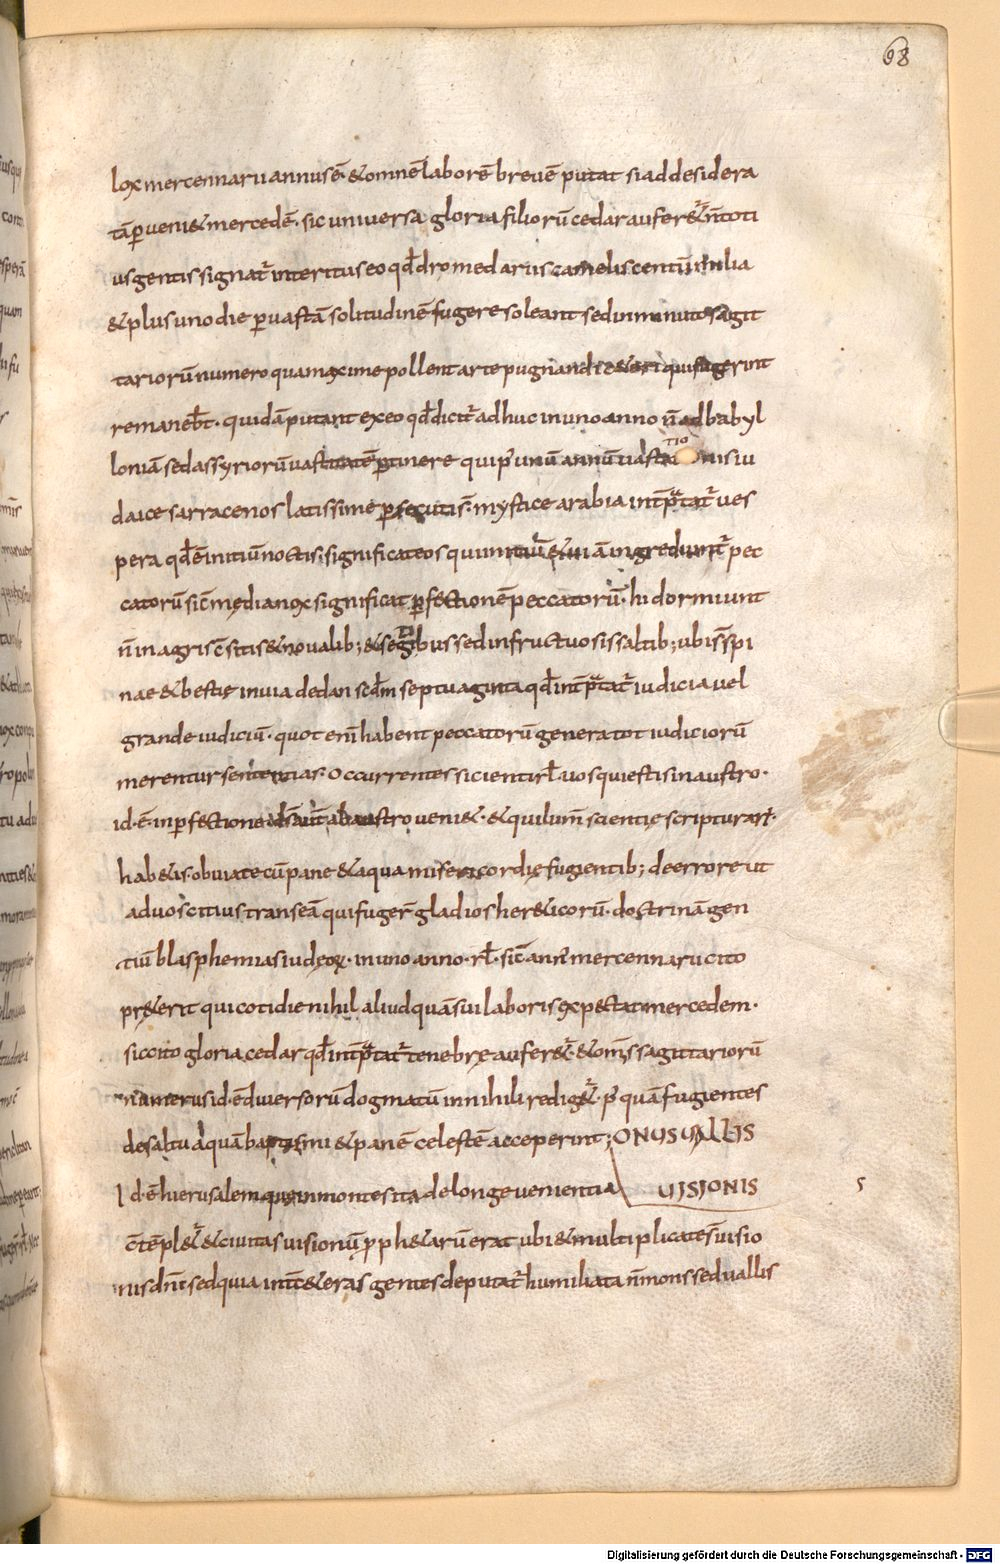 98
lox mercennarii annus ē· & omnē laborē brevē putat si ad desidera
tā ꝑveni& mercedē· sic universa gloria filiorū cedar aufer&ur̄ n̄ toti
us gentis signat̄ interitus eo qđ dromedariis camelis centū milia
& plus uno die ꝑ vastā solitudinē fugere soleant sed inminutę sagit
tariorū numero qua maxime pollent arte pugnandi qui fugerint
remanebt̄· quidā putant ex eo qđ dicit̄ adhuc in uno anno n̄ ad babyl
loniā sed assyriorū ꝑtinere qui p̄ unū annū vastatio
TIO
nis iu
daicę sarracenos latissime ꝑsecutis· mystice arabia int̄p̄tat̄ ves
pera qđ ē initiū noctis significat eos qui viā ingrediunt̄ pec
catorū sic̄ medianox significat ꝑfectionē peccatorū· hi dormiunt
n̄ in agris cōsitis & novalib; & segetibus sed infructuosis saltib; ubi s̄ spi
nae & bestię in via dedan scđm septuaginta qđ int̄p̄tat̄ iudicia vel
grande iudiciū· quot eni habent peccatorū genera tot iudiciorū
merentur sententias· Occurrentes sicienti rł vos qui estis in austro·
id· ē· in ꝑfectione ds̄ aut̄ ab austro veni&· & qui lum̄ scientię scripturarū·
hab&is· obviate cū pane & aqua misericordię fugientib; de errore ut
ad vos citius transeā qui fuger̄ gladios her&icorū· doctrinā gen
tiū blasphemias iudęoꝝ· in uno anno· rł· sic̄ ann̄ mercennarii cito
pr&erit qui cotidie nihil aliud quā sui laboris expectat mercedem·
sic cito gloria cedar qđ int̄p̄tat̄ tenebrę aufer&ur̄· & om̄s sagittariorū
numerus id· ē diversorū dogmatū in nihili redig&ur̄· p̄ quā fugientes
de saltu aquā baptismi & panē celestē acceperint; ONUS VALLIS
Id· ē hierusalem quę in monte sita de longe venientia UISIONIS
5
cōtēpl&ur̄ & civitas visionū ꝓph&arū erat ubi & multiplicatę s̄ visio
nis dn̄i sed quia int̄ c&eras gentes deputat̄ humiliata n̄ mons sed vallis
Digitalisierung gefördert durch die Deutsche Forschungsgemeinschaft - DFG